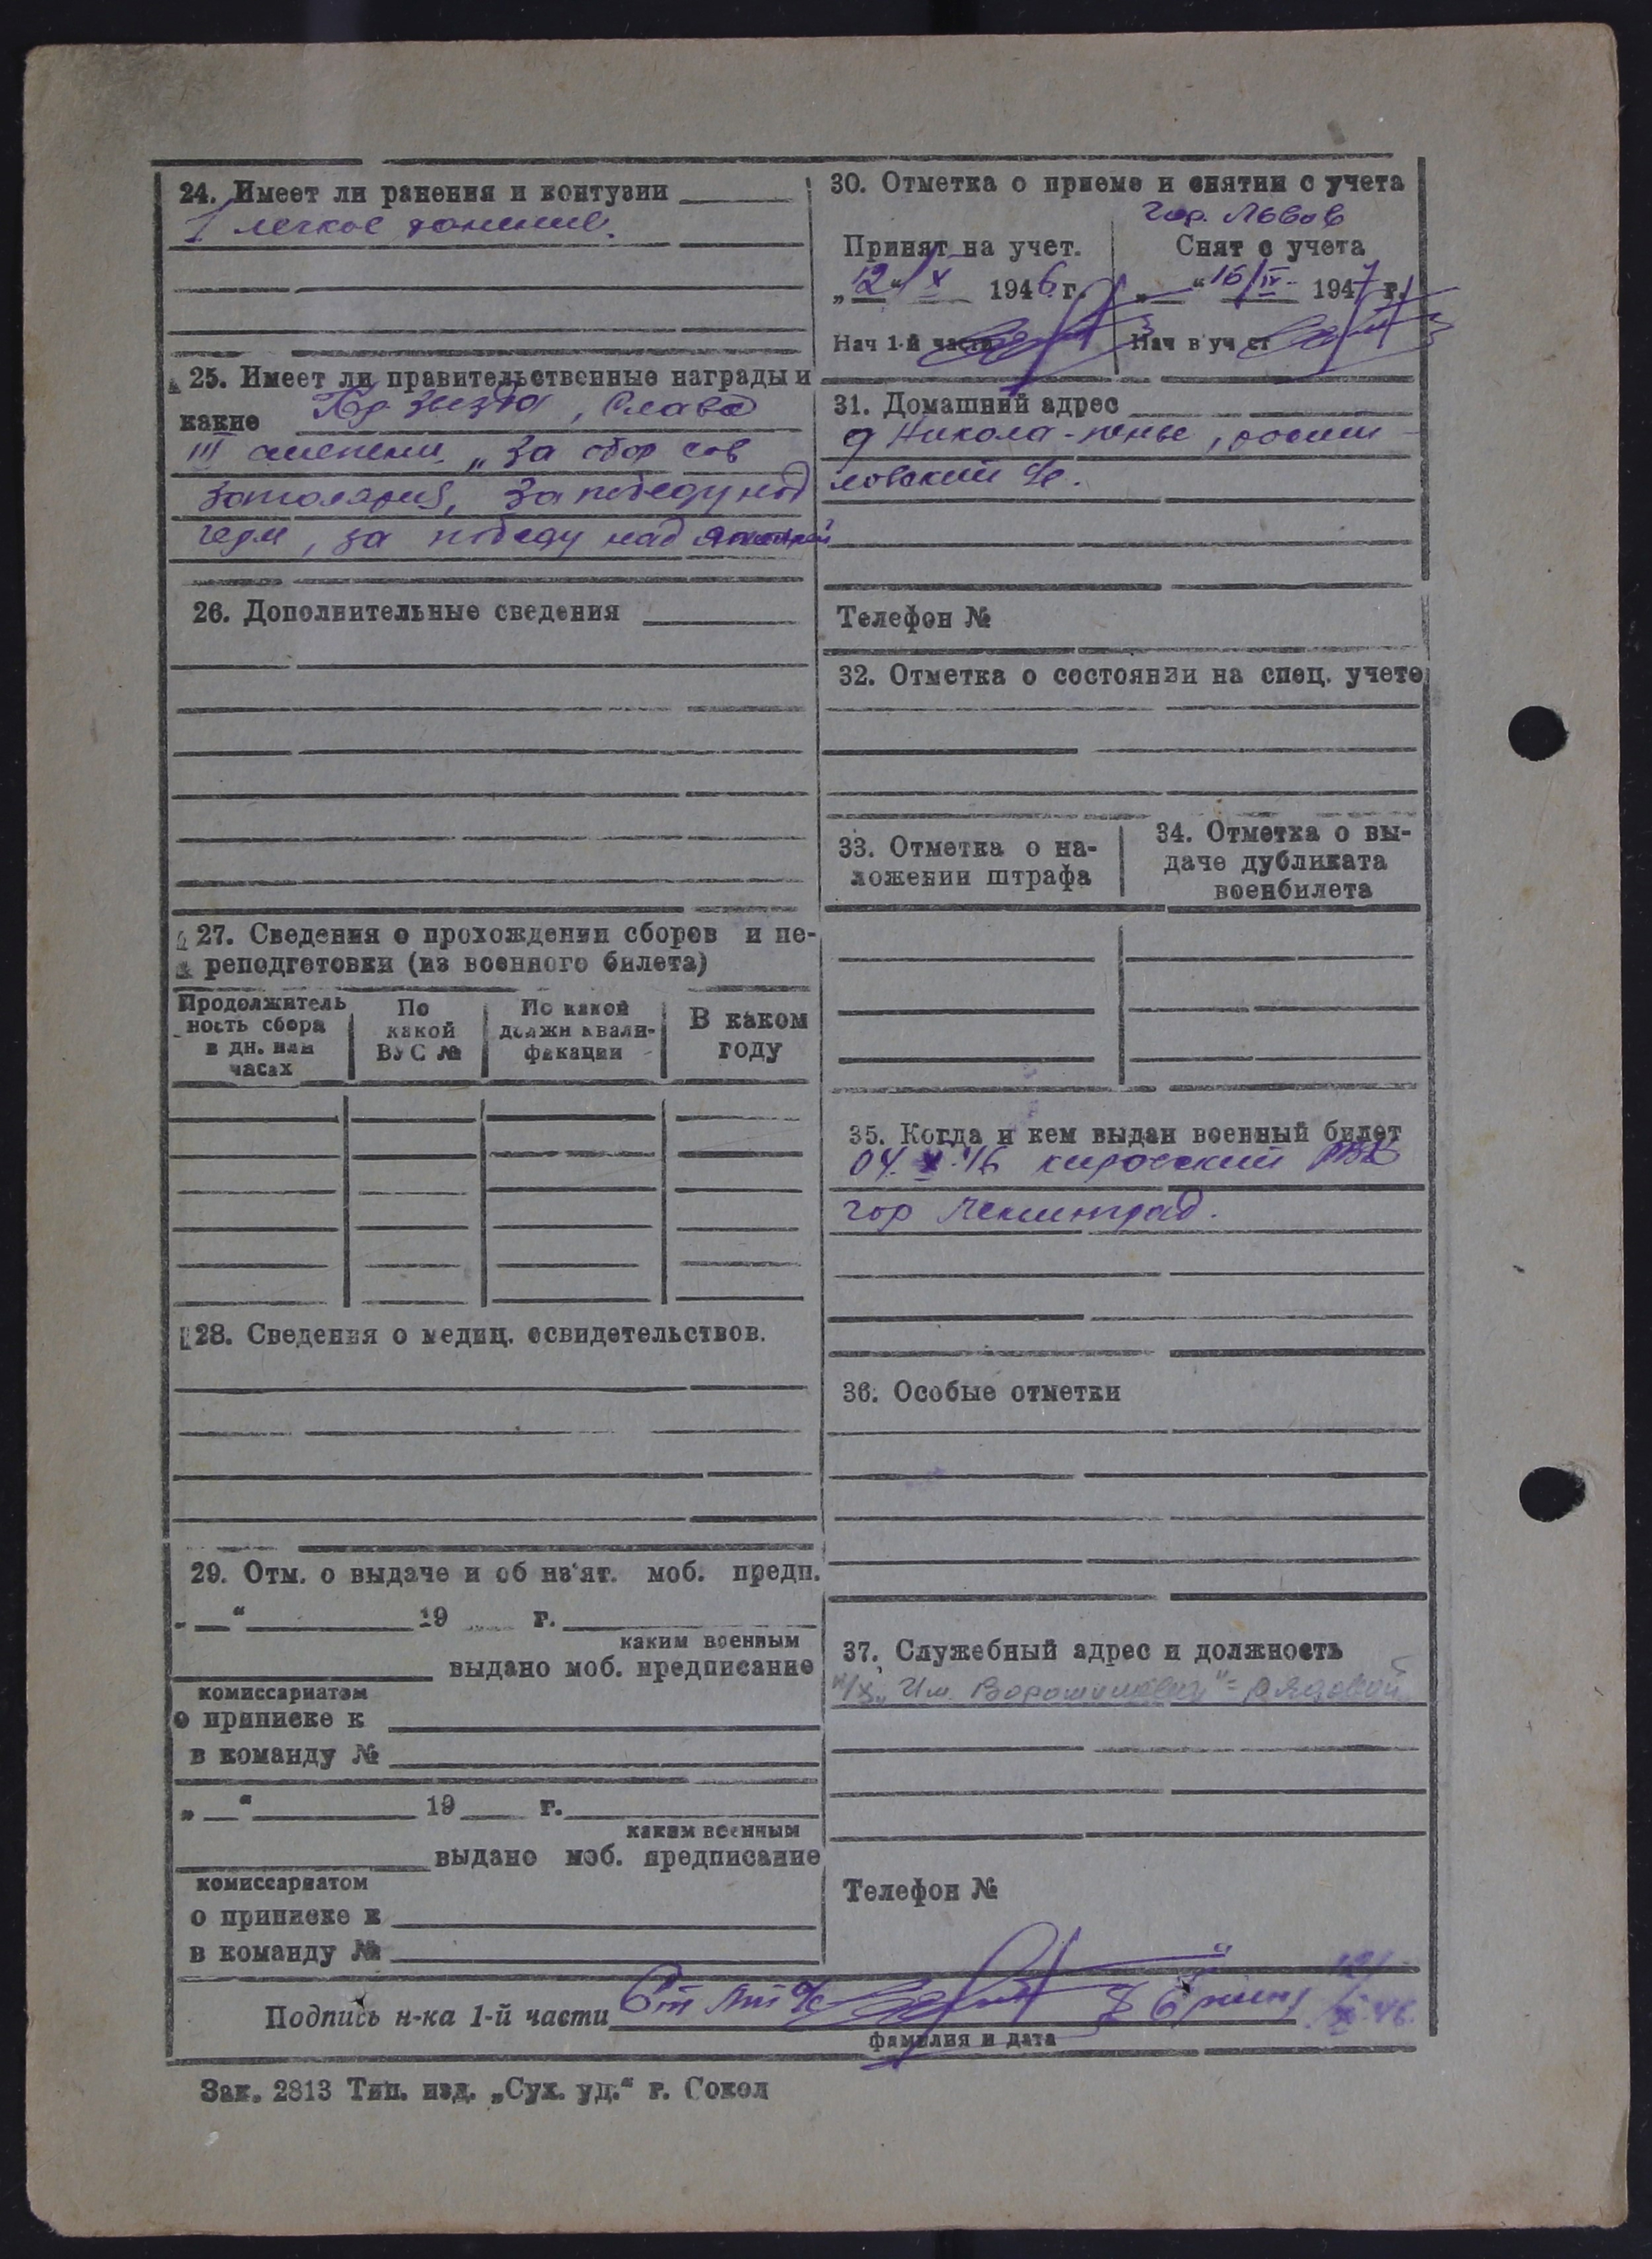 24. Имеет ли ранения и контузии
1 легкое ранение.
25. Имеет ли правительственные награды и
какие Кр звезда, Слава
III степени, „За обор сов
заполярия, За победу над
герм, за победу над японией
26. Дополнительные сведения
27. Сведения о прохождении сборов и пе-
реподготовки (из военного билета)
Продолжитель
ность сбора
в дн. или
часах
По
какой
ВУС №
По какой
должн квали-
фикации
В каком
году
28. Сведения о медиц. освидетельствов.
29. Отм. о выдаче и об из'ят. моб. предп.
„ “ 19 г.
каким военным
выдано моб. предписание
комиссариатом
о приписке к
в команду №
„ “ 19 г.
каким военным
выдано моб. предписание
комиссариатом
о приписке к
в команду №
30. Отметка о приеме и снятии с учета
гор. Львов
Принят на учет.
Снят с учета
„12“ X 1946 г.
„ “ 16/IV 1947 г.
Нач 1-й части
Нач в уч ст
31. Домашний адрес
д Никола-пенье,
Телефон №
32. Отметка о состоянии на спец. учете
33. Отметка о на-
ложении штрафа
34. Отметка о вы-
даче дубликата
военбилета
35. Когда и кем выдан военный билет
04. X 46 кировский РВК
гор Ленинград.
36. Особые отметки
37. Служебный адрес и должность
к/х „Им. Ворошилова“ = рядовой
Телефон №
Подпись н-ка 1-й части Ст лт а/с
фамилия и дата
Зак. 2813 Тип. изд. „Сух. уд.“ г. Сокол